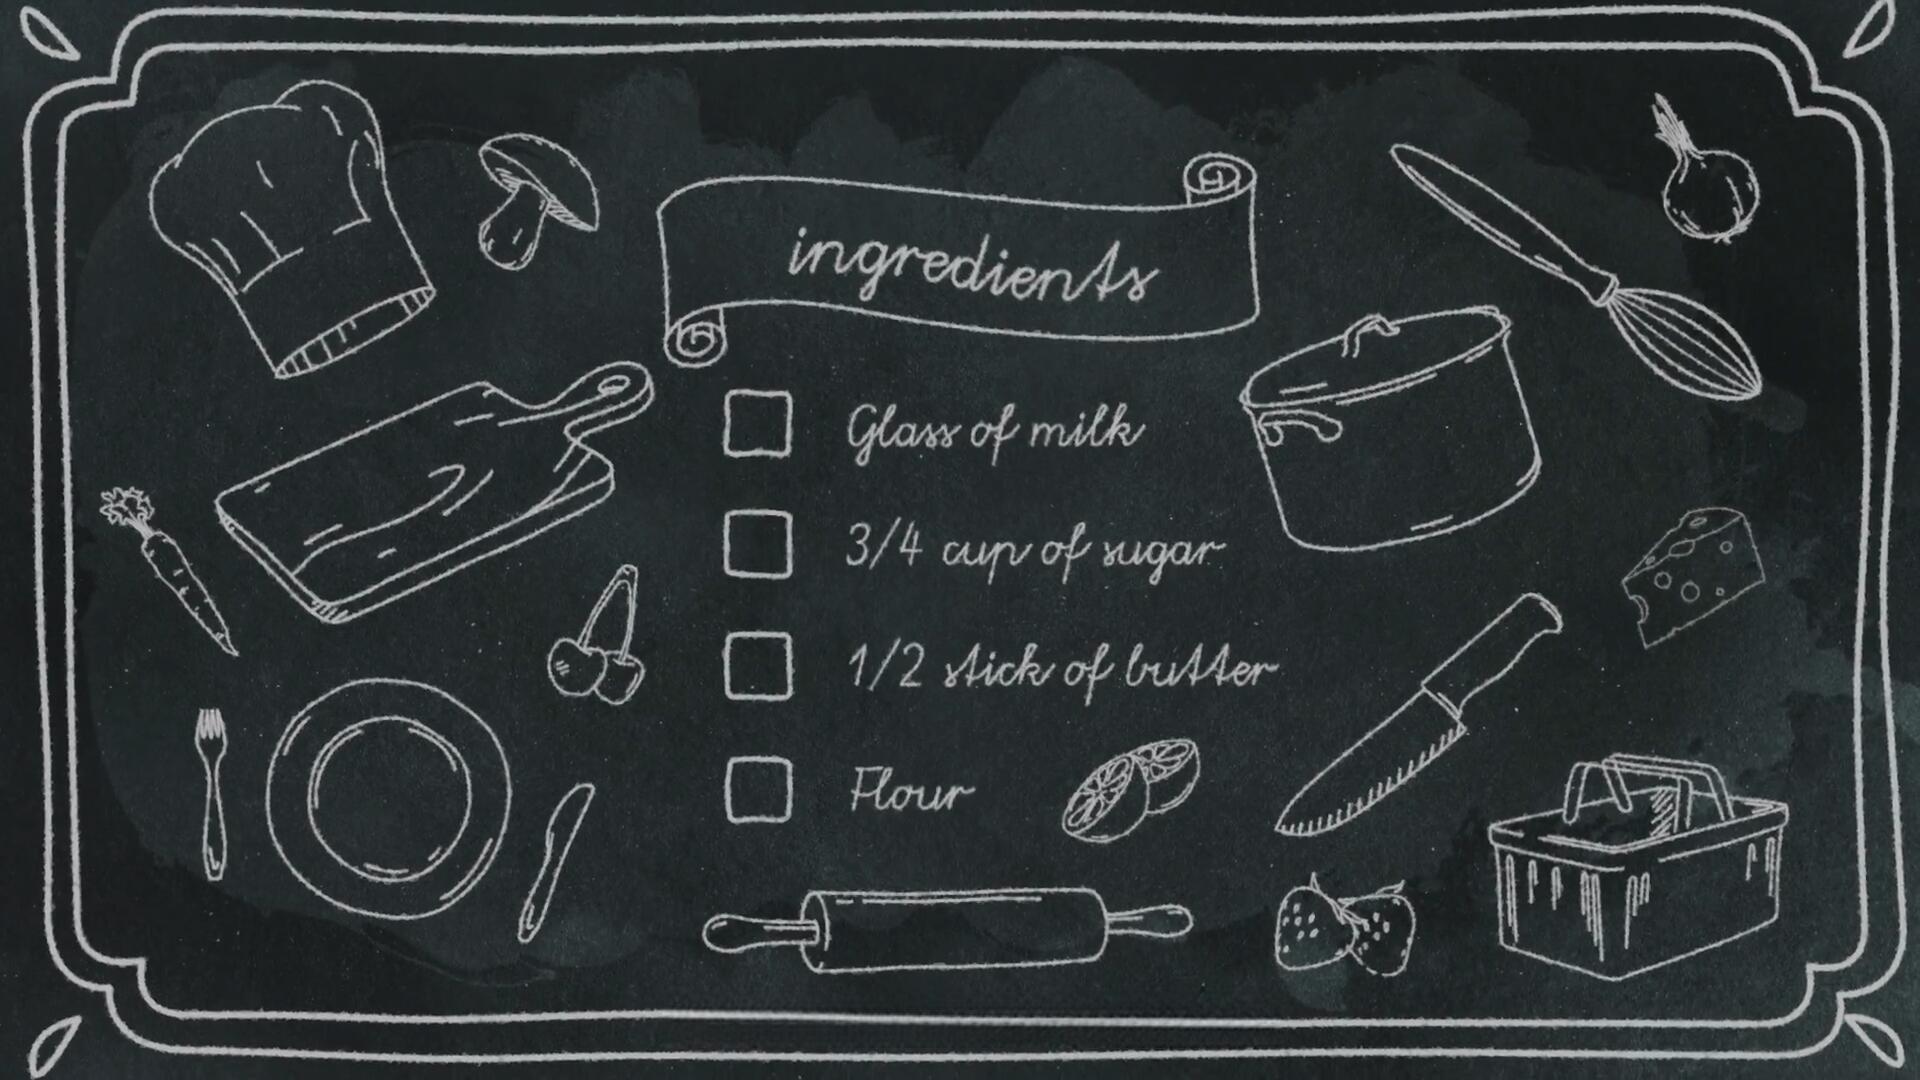 ingredients
Glass of milk
3/4 cup of sugar
1/2 stick of butter
Flour